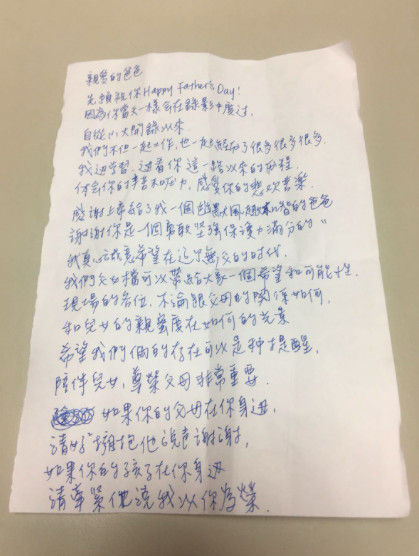 親愛的爸爸
先預祝你Happy Father's Day!
因為你當天一樣會在錄影中度過.
自從小大開錄以來
我們不但一起工作,也一起經歷了很多很多很多.
我邊學習 邊看你這一路以來的歷程.
体會你的辛苦和努力,感覺你的悲欢喜樂.
感謝上帝給了我一個幽默大風趣機智的爸爸
謝謝你是一個勇敢堅強保護力滿分的"
我真心誠意希望在這個無父的時代
我們父女檔可以帶給大家一個希望和可能性.
現場的各位.不論跟父母的関係如何.
和兒女的親蜜度在如何的光景
希望我們倆的存在可以是种提醒.
陪伴兒女,尊榮父母非常重要.
如果你的父母在你身边,
請好好擁抱他說声謝謝,
如果你的孩子在你身边
請牽緊他說我以你為榮.